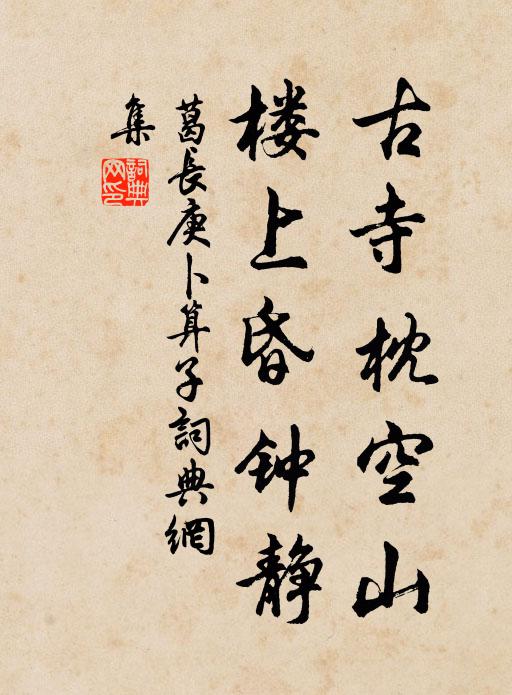 古寺枕空山
楼上昏钟静
葛長庚卜算子詞典網
集
詞典网印